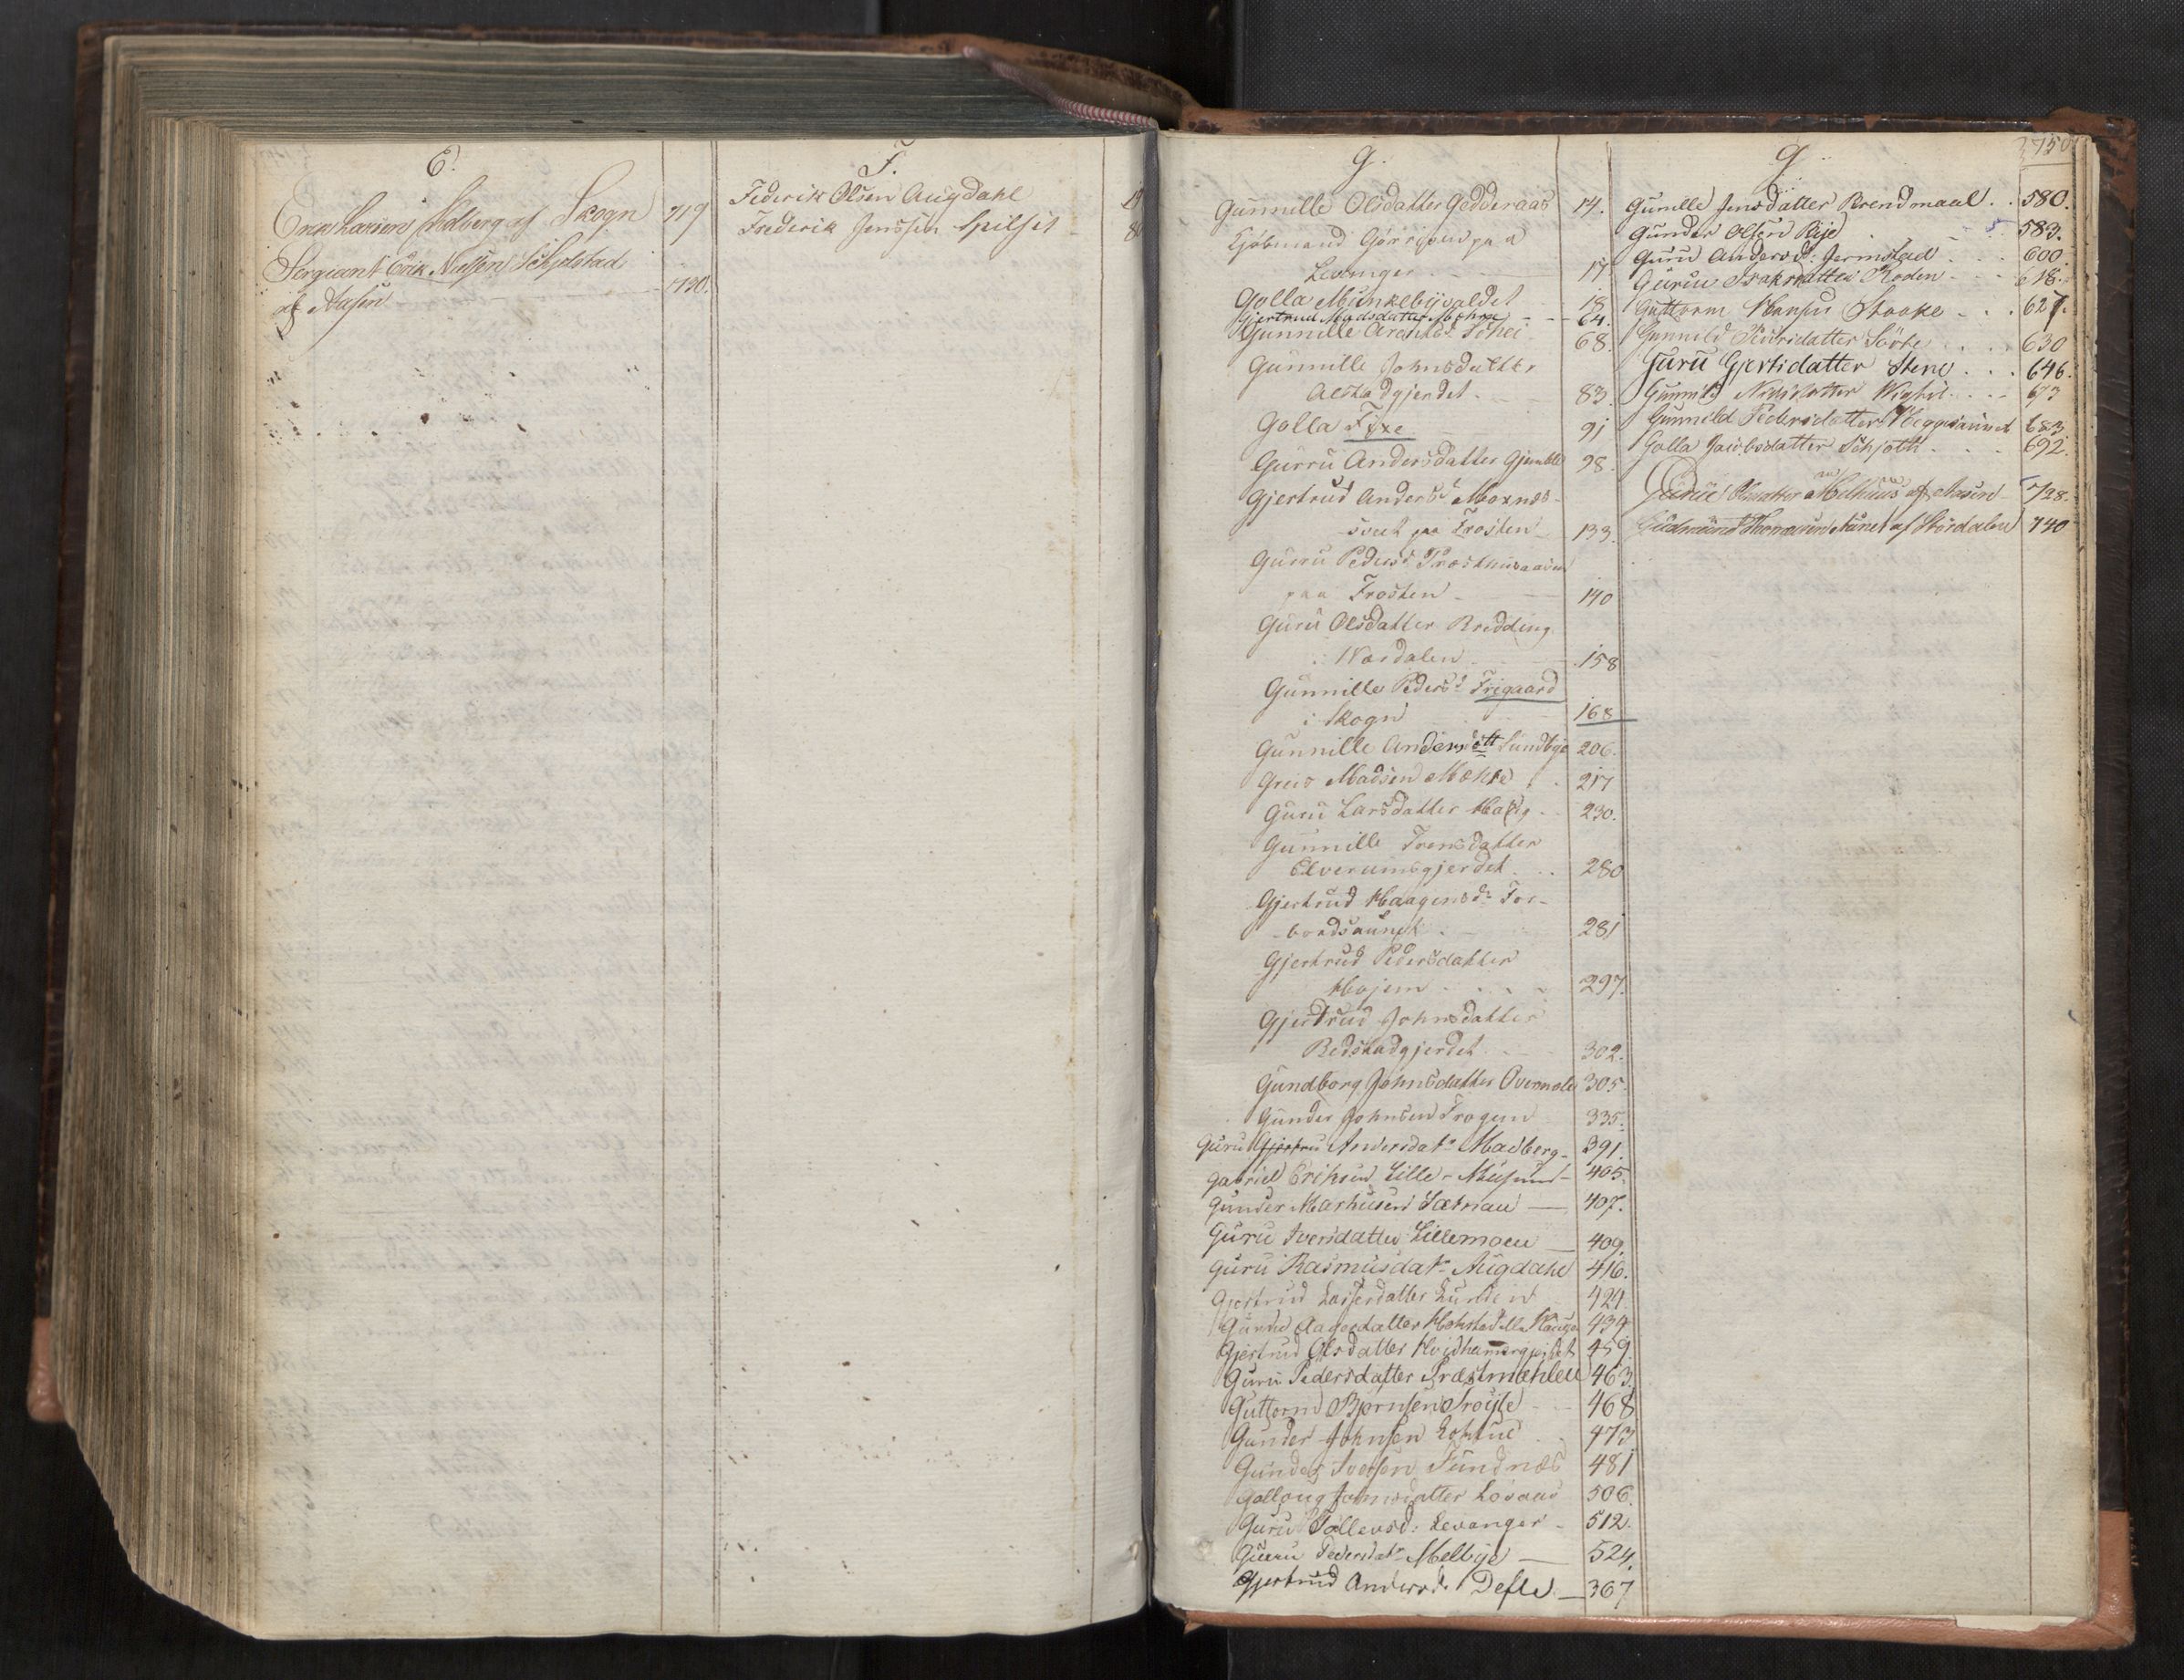 E.
Erik Larsen Hedberg af Skogn 719
Sergiant Erik Nielsen Schjelstad
af Aasen 730.
F.
Federik Olsen Augdahl
Frederik Jenssen Spilset
G.
Gunnille Olsdatter Godderaas 14.
Kjöbmand Görrisen paa
Levanger 17
Golla Munkebyvaldet 18
Gjertrud Madsdatter Mæhre 64.
Gunnille Arentsd Schei 68.
Gunnille Johnsdatter
Alstadgjerdet 83
Golla Fixe 91
Gurru Andersdatter Gjemble 98.
Gjertrud Andersd Moxnes-
svet paa Frosten 133.
Gurru Pedersd Presthusaasen
paa Frosten 140
Guru Olsdatter Bredding
i Værdalen 158
Gunnille Pedersd Frigaard
i Skogn 168
Gunnille Andersdatt Sundbye 206.
Greis Madsen Mæhre 217
Guru Larsdatter Haug 230.
Gunnille Irensdatter
Elverumsgjerdet 280
Gjertrud Haagensdr For-
bordsaunet 281
Gjertrud Pedersdatter
Hojem 297.
Gjertrud Johnsdatter
Bedstadgjerdet 302.
Gundborg Johnsdatter Overmole 305.
Gunder Johnsen Trogen 335.
Guru Gjertru Andersdatr Madberg 391.
Gabriel Eriksen Lille-Musum 405.
Gunder Markusen Sætnan 407.
Guru Iversdatter Lillemoen 409.
Guru Rasmusdatr Augdahl 416.
Gjertrud Lassesdatter Lunden 424.
Gurru Aagesdatter Hokstad 434
Gjertrud Olsdatter Hvidhammergjerdet 459.
Guru Pedersdatter Præstmæhlen 463.
Guttorm Bjørnsen Trøyte 468
Gunder Johnsen Loktue 473
Gunder Iversen Tundnæs 481
Gollaug Johnsdatter Lovaas 506.
Guru Tollevsd: Levanger 512.
Guru Pedersdatr Melbye 524.
Gjertrud Andersdr Defle 367
G.
750
Gunille Jensdatter Brendmaal 580.
Gunder Olsen Rye 583.
Guru Andersd: Jermstad 600.
Guru Isaksdatter Roden 618.
Guttorm Hansen Stooke 627.
Gunnild Siversdatter Sörte 630
Guru Gjertsdatter Stene 646.
Gunnild Nilsdatter Wigtil 673
Gunnild Pedersdatter Hegguaunet 683
Golla Jacobsdatter Schjöth 692.
Guruc Olsdatter Melhuus af Aasen 728.
Gudmund Thomassen Aunet af Størdalen 740